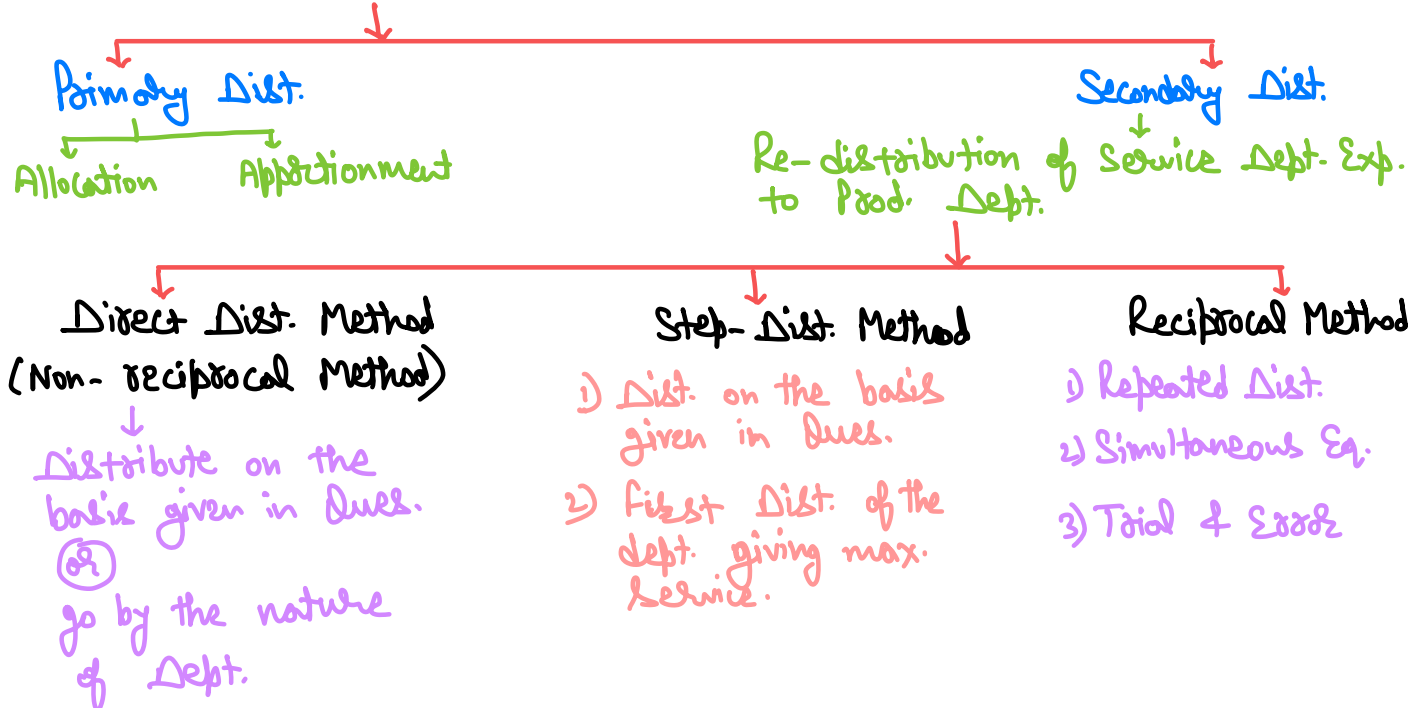 Primary Dist.
Allocation
Apportionment
Secondary Dist.
Re-distribution of Service Dept. Exp.
to Prod. Dept.
Direct Dist. Method
(Non-reciprocal Method)
Distribute on the
basis given in Ques.
or
go by the nature
of Dept.
Step-Dist. Method
1) Dist. on the basis
given in Ques.
2) First Dist. of the
dept. giving max.
service.
Reciprocal Method
1) Repeated Dist.
2) Simultaneous Eq.
3) Trial & Error